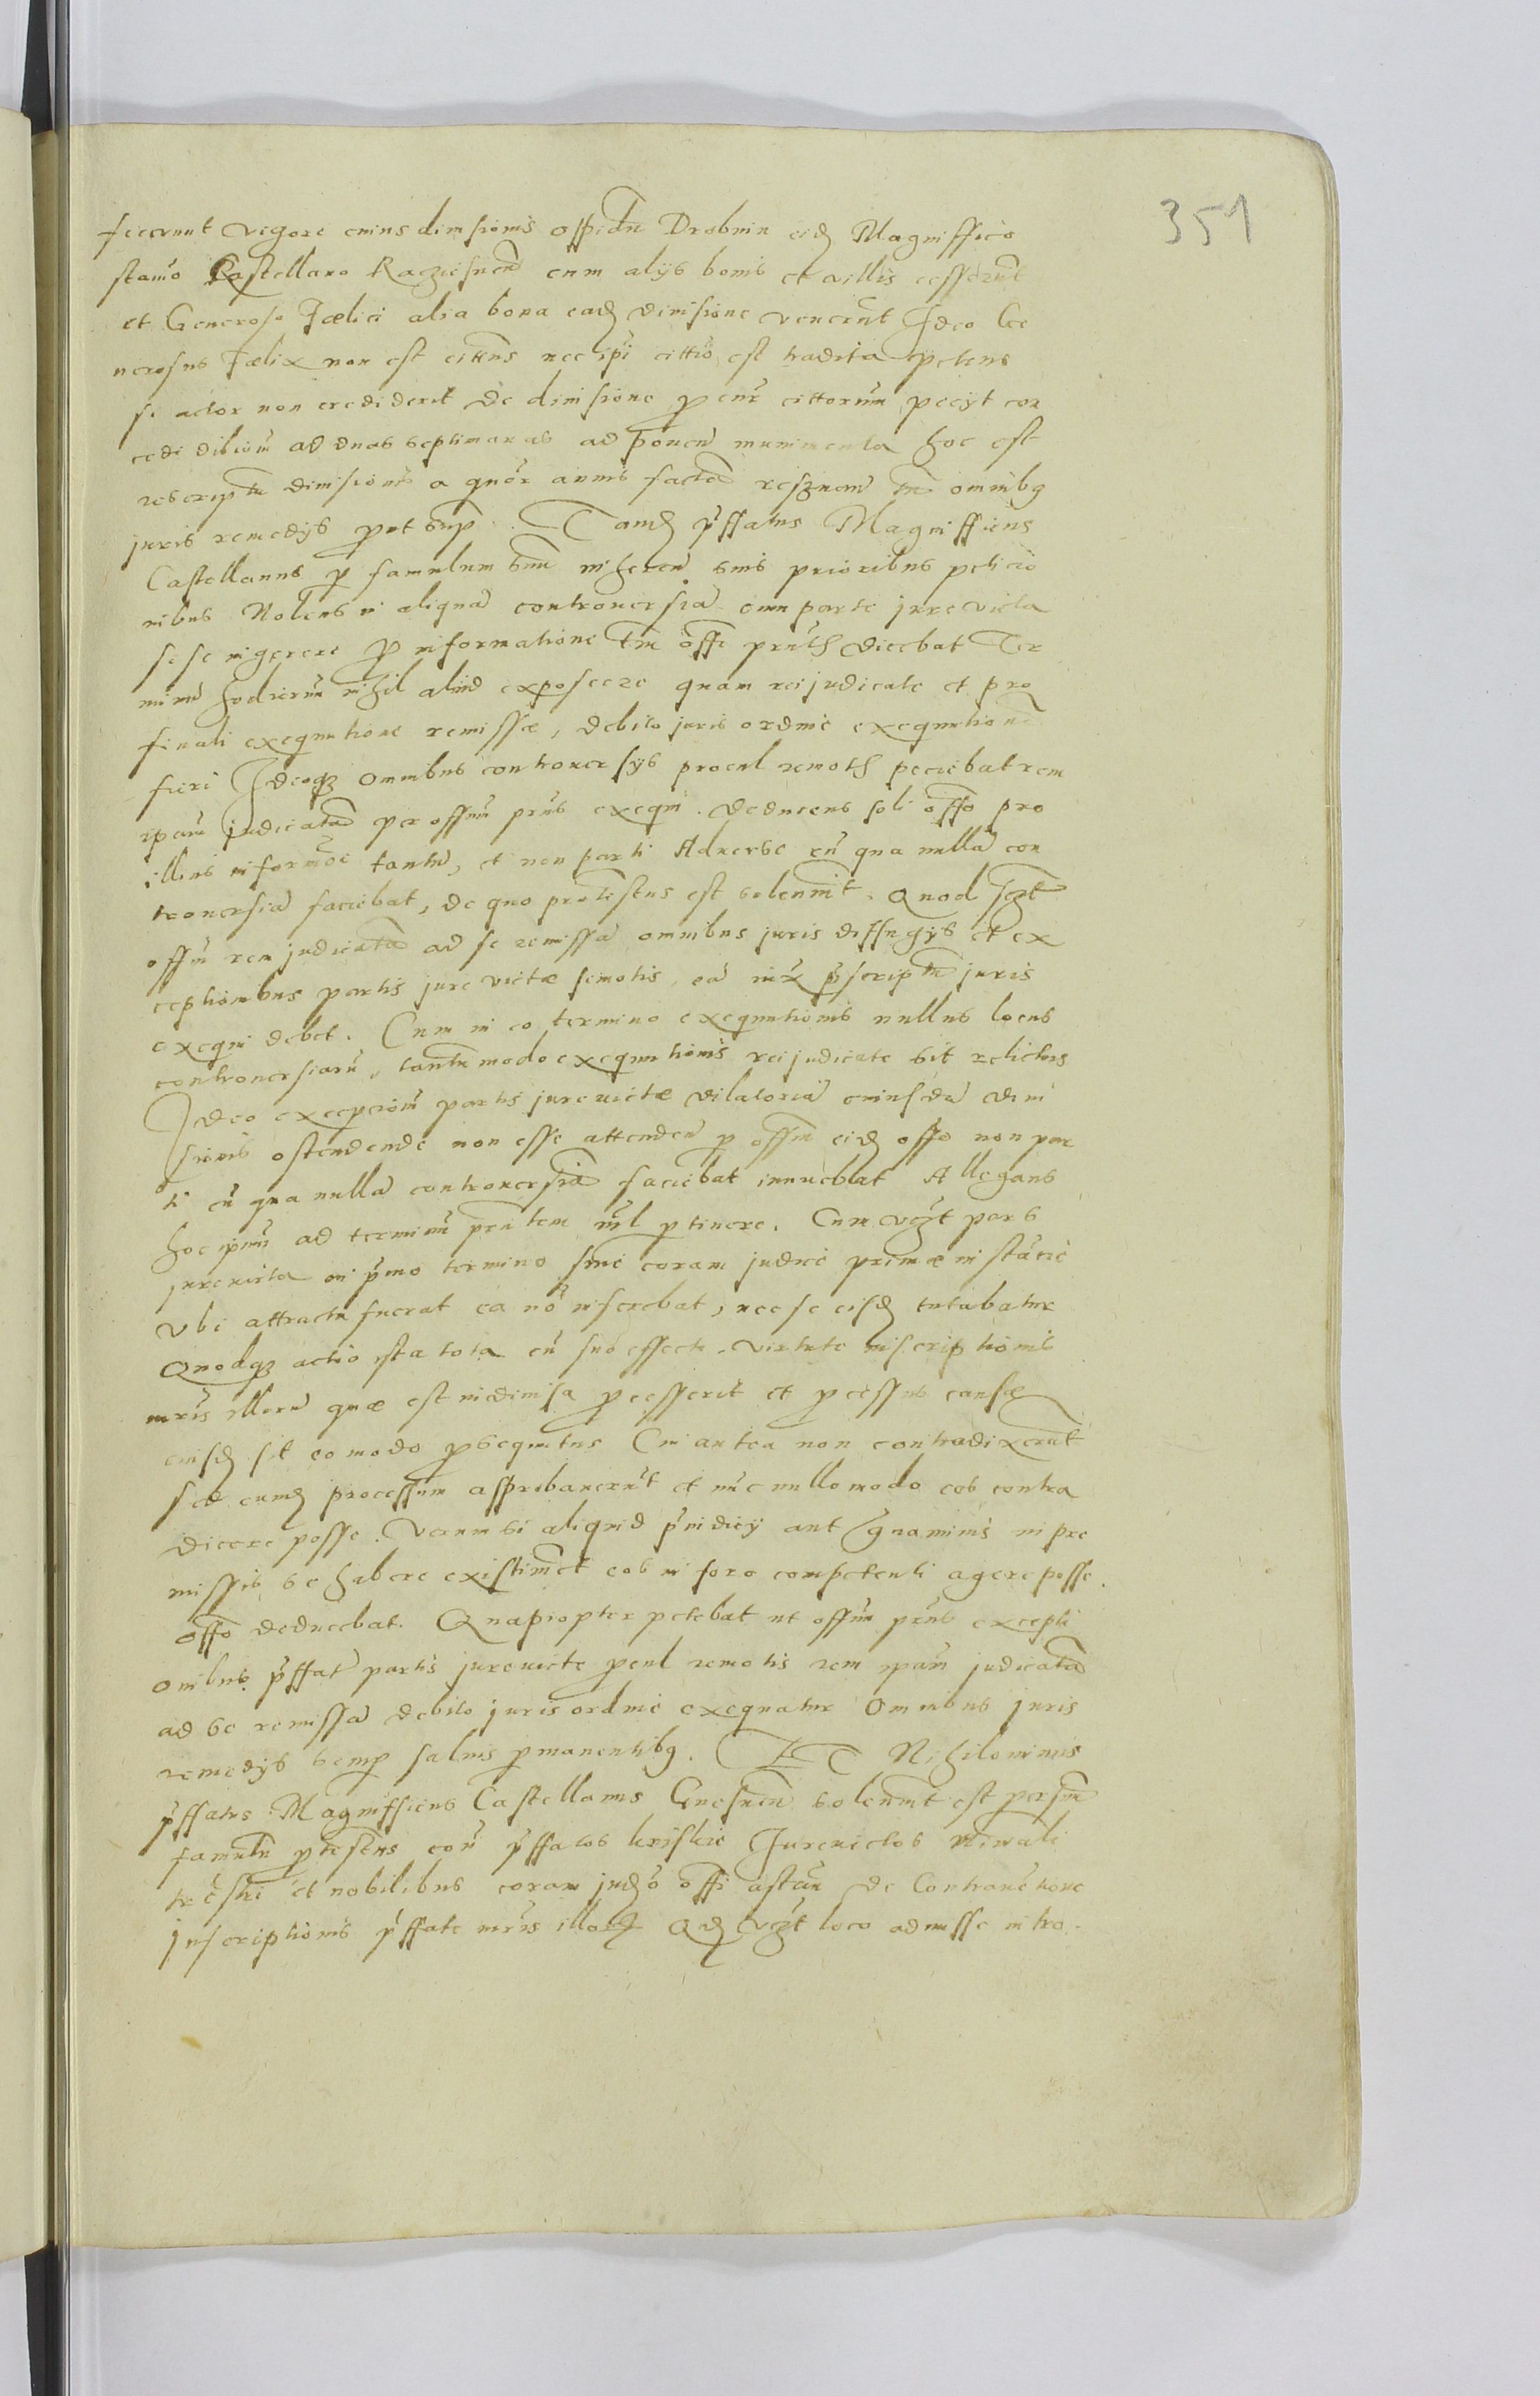 351
fecerunt vigore cuius divisionis oppidu Drobnin eid Magniffico
Castellano Racziesnen cum alys bonis et villis cesserunt
et Generoso Fœlici alia bona ead divisione venerunt Ideo Ge
nerosus Fœlix non est cittus nec ipi cittio est tradita petens
si actor non crediderit de divisione p cittorum peciyt con
cedi dilcium ad duas septimanas ad ponen munimenta hoc est
rescriptu divisionis a quor annis facta omnibq
juris remedys put sup. Tand pffatus Magnifficus
Castellanus p famulum suu inheren suis prioribus peticio
nibus Nolens in aliqua controversia cum parte jurevicta
sese ingerere p informatione tm offi pntis dicebat Ter
minu hodiernu nihil aliud exposcere quam rei judicate et pro
finali exequutione remissæ, debito juris ordine exequutione
fieri Ideoqz omnibus controversys procul remotis peciebat rem
ipam judicatam per offum pns exequi. Deducens soli offo pro
illius informoe tantu, et non parti Adverse cu qua nulla con
troversia faciebat, de quo protestus est solennit. Quod
offm rem judicata ad se remissa omnibus juris diffugys et ex
ceptionibus partis jure victæ semotis, ea iux pscriptu juris
exequi debet. Cum in eo termino exequutionis nullus locus
controversiaru, tantumodo exequutionis rei judicate sit relictus
Ideo excepcionem partis jurevictæ dilatoria cuiusda divi
sionis ostendende non esse attenden p offm eid offo non par
ti cu qua nulla controversia faciebat innuebat Allegans
hoc ipmu ad terminu pntem nil ptinere. Cum pars
jurevicta in pmo termino sive coram judice primæ instancie
Ubi attracta fuerat ea no inserebat, nec se eisd tutabatur
Quodqz actio ista tota cu suo effectu virtute inscriptionis
illoru quæ est indivisa pcesserit et pcessus causæ
eiusd sit eo modo psequutus Cui antea non contradixerunt
sed eumd processum approbaverut et nuc nullo modo eos contra
dicere posse. Verum si aliquid pindicy aut gravaminis in pre
missis se habere existimet eos in foro competenti agere posse.
offo deducebat. Quapropter petebat ut offum pns excepti
onibus pffat partis jurevicte pcul remotis rem ipam judicata
ad se remissa debito juris ordine exequatur Omnibus juris
remedys semp salvis pmanentibq. ET Nihilominus
pffatus Magnifficus Castellanus Gnesnen solennit est per suu
famulu ptestus con pffatos kriskie Jurevictos
et nobilibus coram judo offi astan de Contravetione
Inscriptionis pffate illo Qd loco admisse intro.